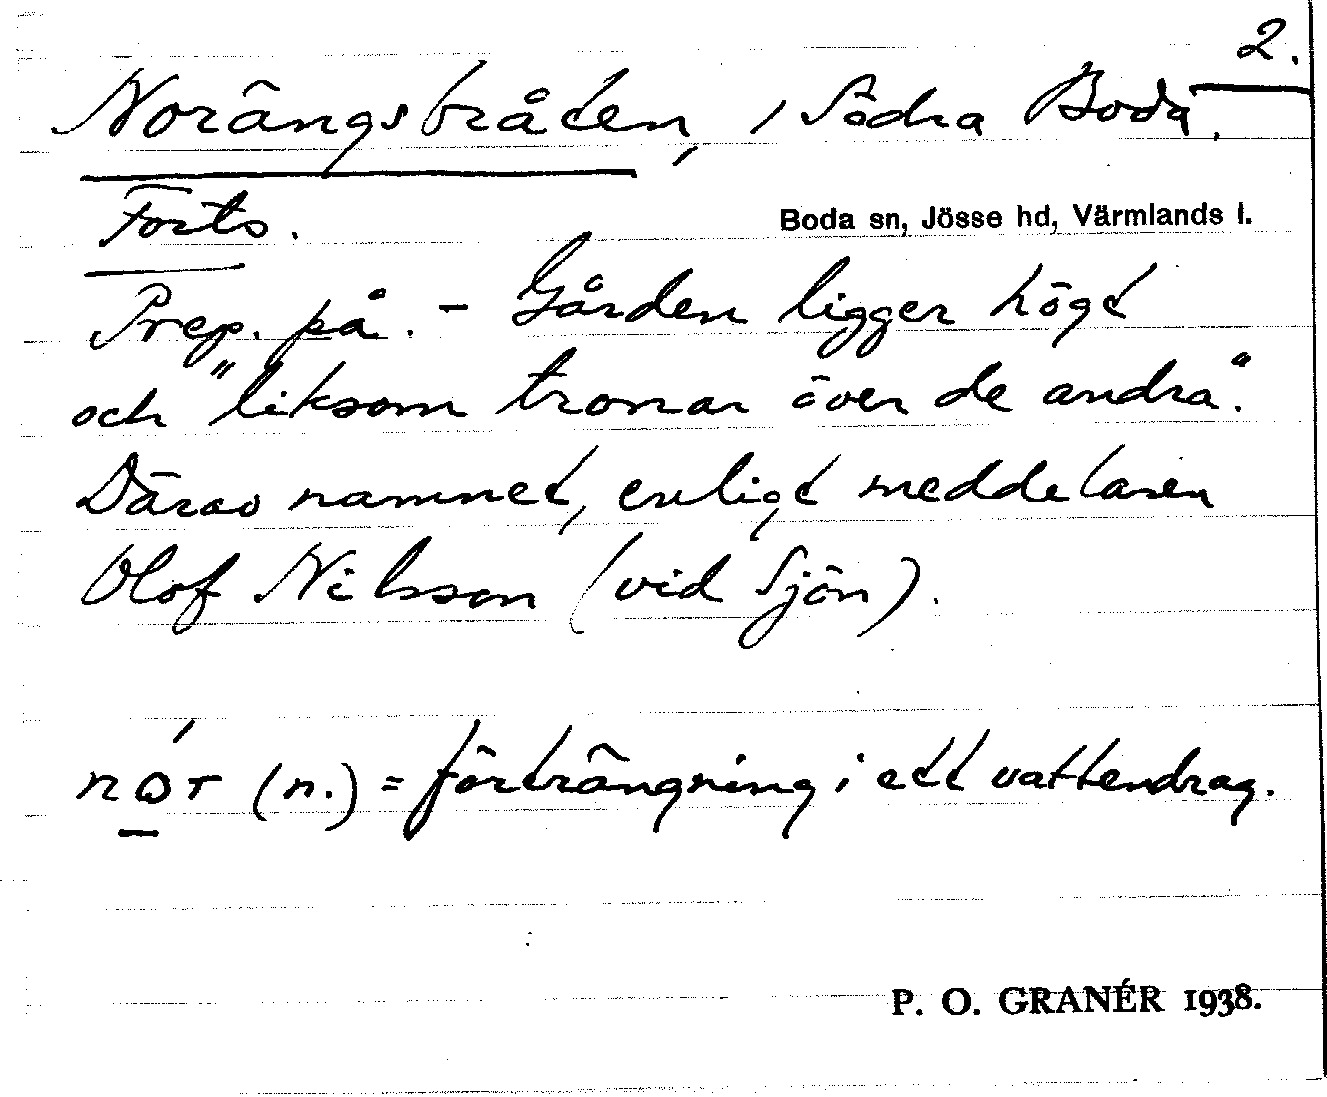 2.
Norängsbråten, i Södra Boda.
Forts.
Boda sn, Jösse hd, Värmlands l.
Prep. på. - Gården ligger högt
och "liksom tronar över de andra".
Därav namnet, enligt meddelaren
Olof Nilsson (vid Sjön).
(n.) = förträngning i ett vattendrag.
P. O. GRANÉR 1938.